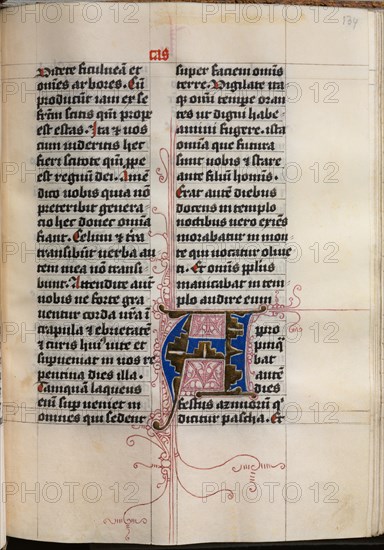 134
cas
Videte ficulneā et
om̄es arbores. Cū
producūt iam ex se
fructū scitis qm̄ prope
est estas. Ita et vos
cum videritis hec
fieri scitote qm̄ ꝓpe
est regnū dei. Amē
dico vobis quia nō
preteribit genera
cio hec donec om̄ia
fiant. Celum et t̄ra
transibūt verba au
tem mea nō transi
bunt. Attendite autē
vobis ne forte gra
uentur corda v̄ra ī
crapula et ebrietate
et curis huiꝰ vite et
superueniat in vos re
pentina dies illa.
Tamquā laqueus
enim superueniet in
omnes qui sedent
super faciem om̄is
terre. Vigilate ita
qꝫ om̄i tempore oran
tes ut digni habe
amini fugere ista
omnia que futura
sunt vobis et stare
ante filiū hominis.
Erat autē diebus
docens in templo
noctibus vero exiēs
morabatur in mon
te qui vocatur oliue
ti. Et omnis ppl̄us
manicabat in tem
plo audire eum
Appro
pinq̄
bat
autē
dies
festus azimorum qͥ
dicitur pascha. Et